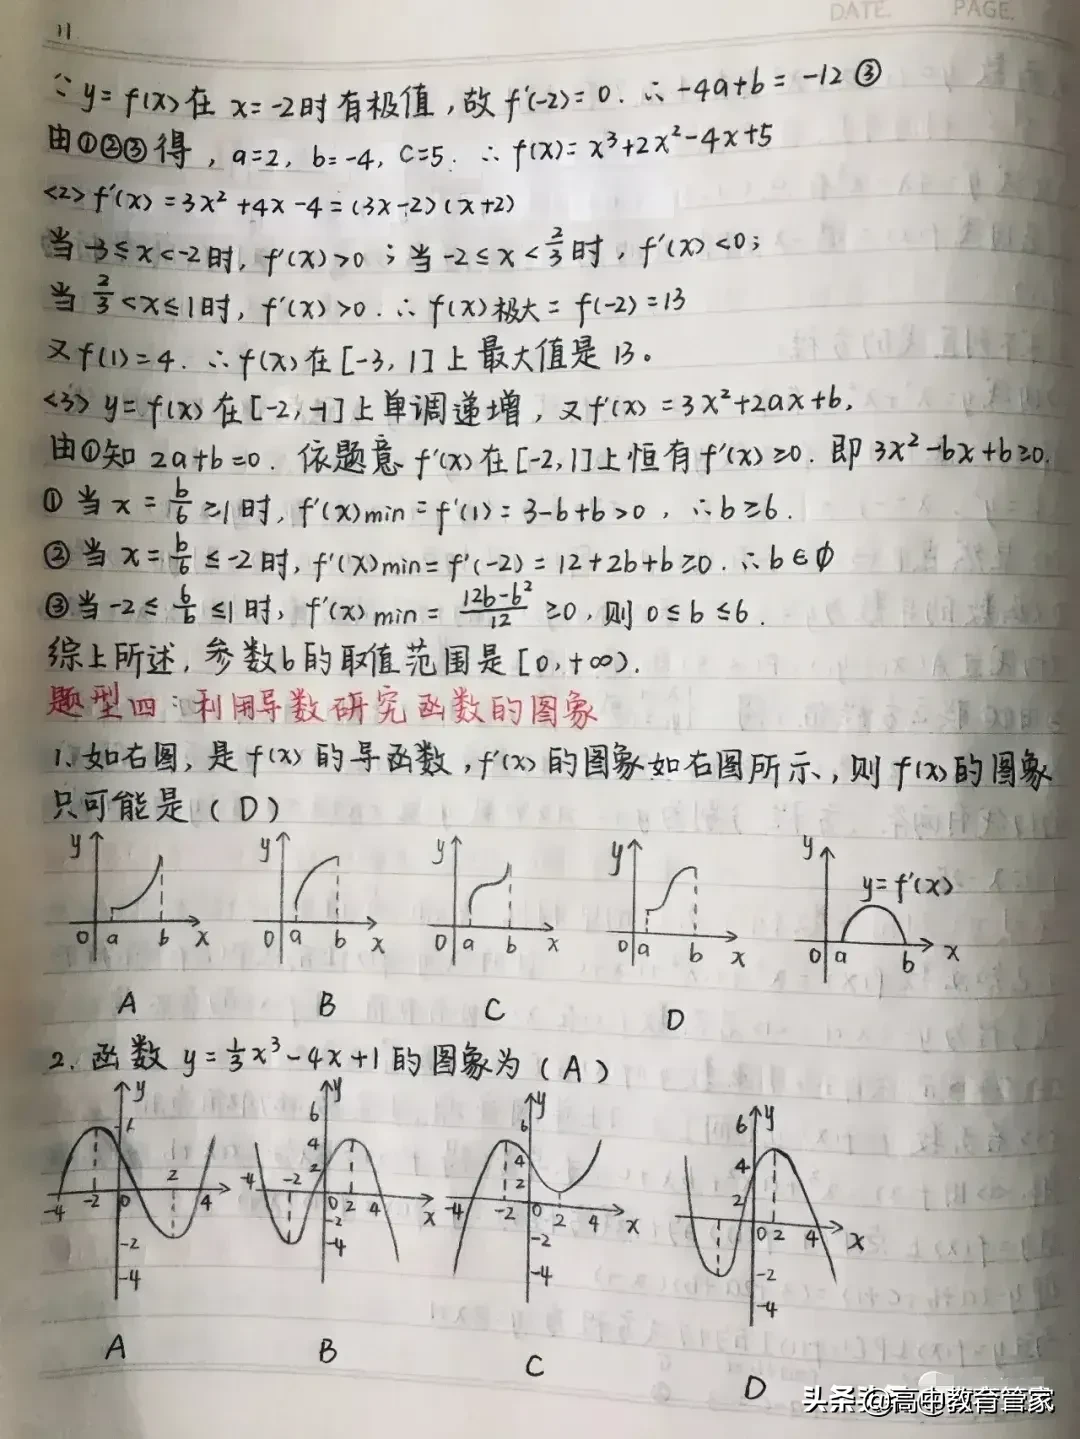 DATE. PAGE.
11
∵ y=f(x)在 x=-2时有极值,故f'(-2)=0. ∴ -4a+b=-12 ③
由①②③得, a=2, b=-4, C=5. ∴ f(x)=x³+2x²-4x+5
<2> f'(x)=3x²+4x-4=(3x-2)(x+2)
当-3≤x<-2时, f'(x)>0;当-2≤x<2/3时, f'(x)<0;
当 2/3<x≤1时, f'(x)>0. ∴ f(x)极大=f(-2)=13
又f(1)=4. ∴ f(x)在[-3, 1]上最大值是13。
<3> y=f(x)在[-2,-1]上单调递增,又f'(x)=3x²+2ax+b,
由①知 2a+b=0. 依题意 f'(x)在[-2,1]上恒有f'(x)≥0. 即3x²-bx+b≥0.
①当x=b/6≥1时, f'(x)min=f'(1)=3-b+b>0, ∴b≥6.
②当x=b/6≤-2时, f'(x)min=f'(-2)=12+2b+b≥0. ∴b∈∅
③当-2≤b/6≤1时, f'(x)min=(12b-b²)/12≥0,则0≤b≤6.
综上所述,参数b的取值范围是[0,+∞).
题型四:利用导数研究函数的图象
1、如右图,是f(x)的导函数,f'(x)的图象如右图所示,则f(x)的图象
只可能是(D)
y 0 a b x
y 0 a b x
y 0 a b x
y 0 a b x
y y=f'(x) 0 a b x
A B C D
2. 函数 y=1/3x³-4x+1的图象为(A)
y -4 -2 0 2 4 -2 -4
y 6 4 2 -4 -2 0 2 4 x -2 -4
y 6 4 2 -4 -2 0 2 4 x -2 -4
y 6 4 2 0 2 4 x -2 -4
A B C D
头条@高中教育管家